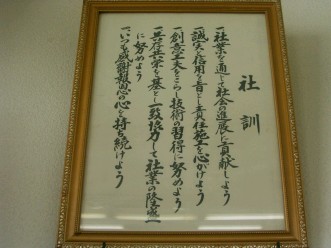 社訓
一、社業を通じて社会の進展に貢献しよう
一、誠実と信用を旨とし責任施工を心がけよう
一、創意工夫をこらし技術の習得に努めよう
一、共存共栄を基と一致協力して社業の隆盛
に努めよう
一、いつも感謝報恩の心を持ち続けよう